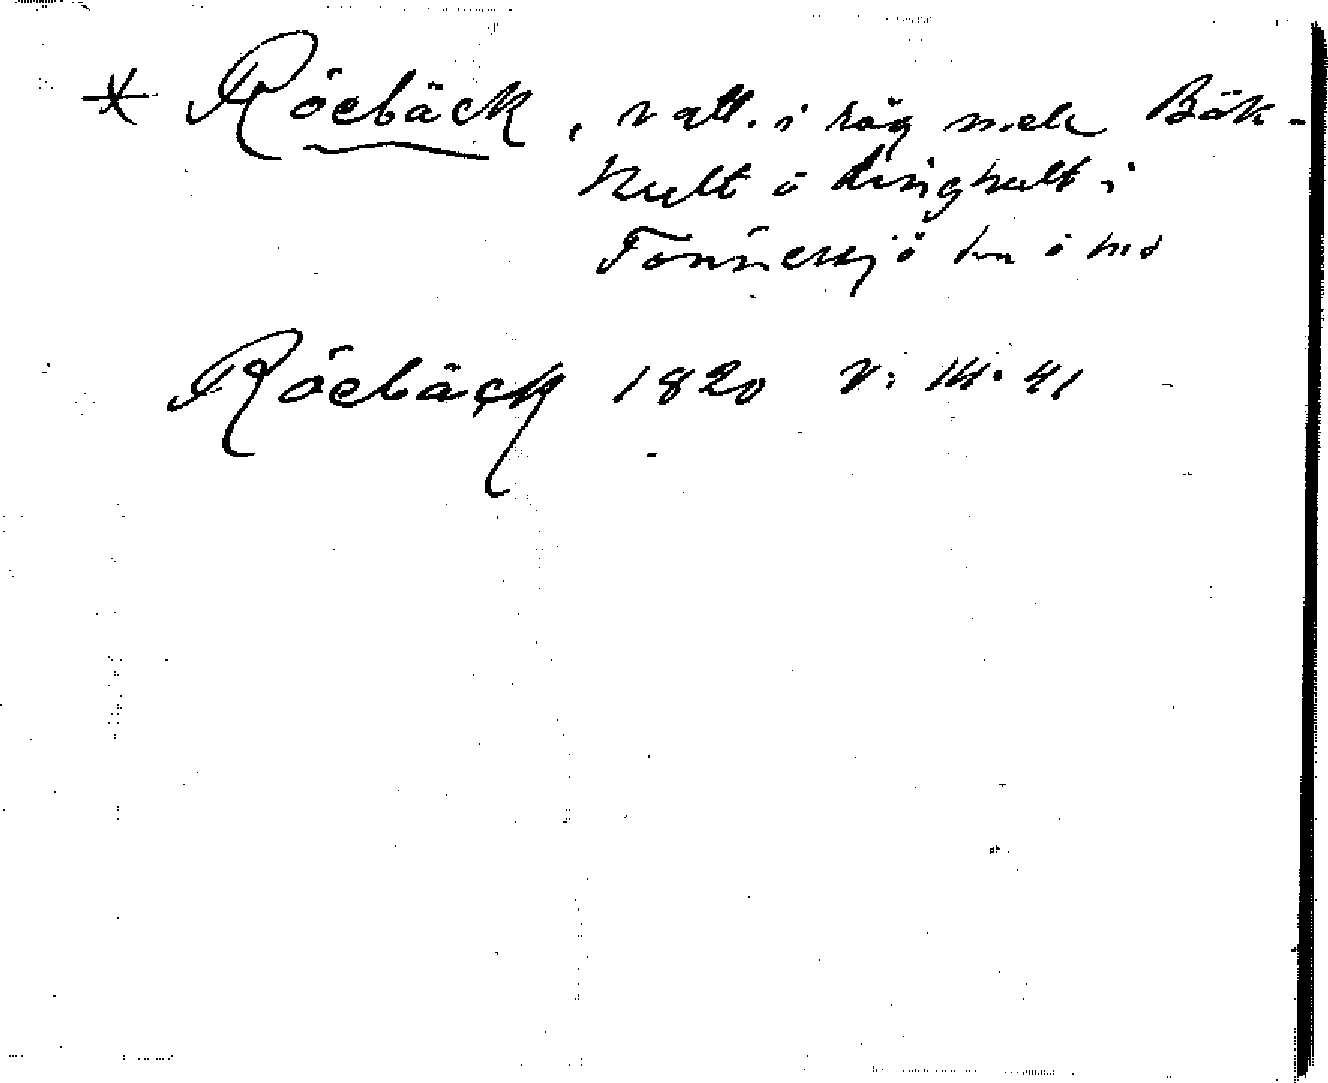 * Röebäck, vatt. i räg mell Bök-
hult o Linghult i
Tönnersjö sn o hd
Röebäck 1820 V: 14: 41